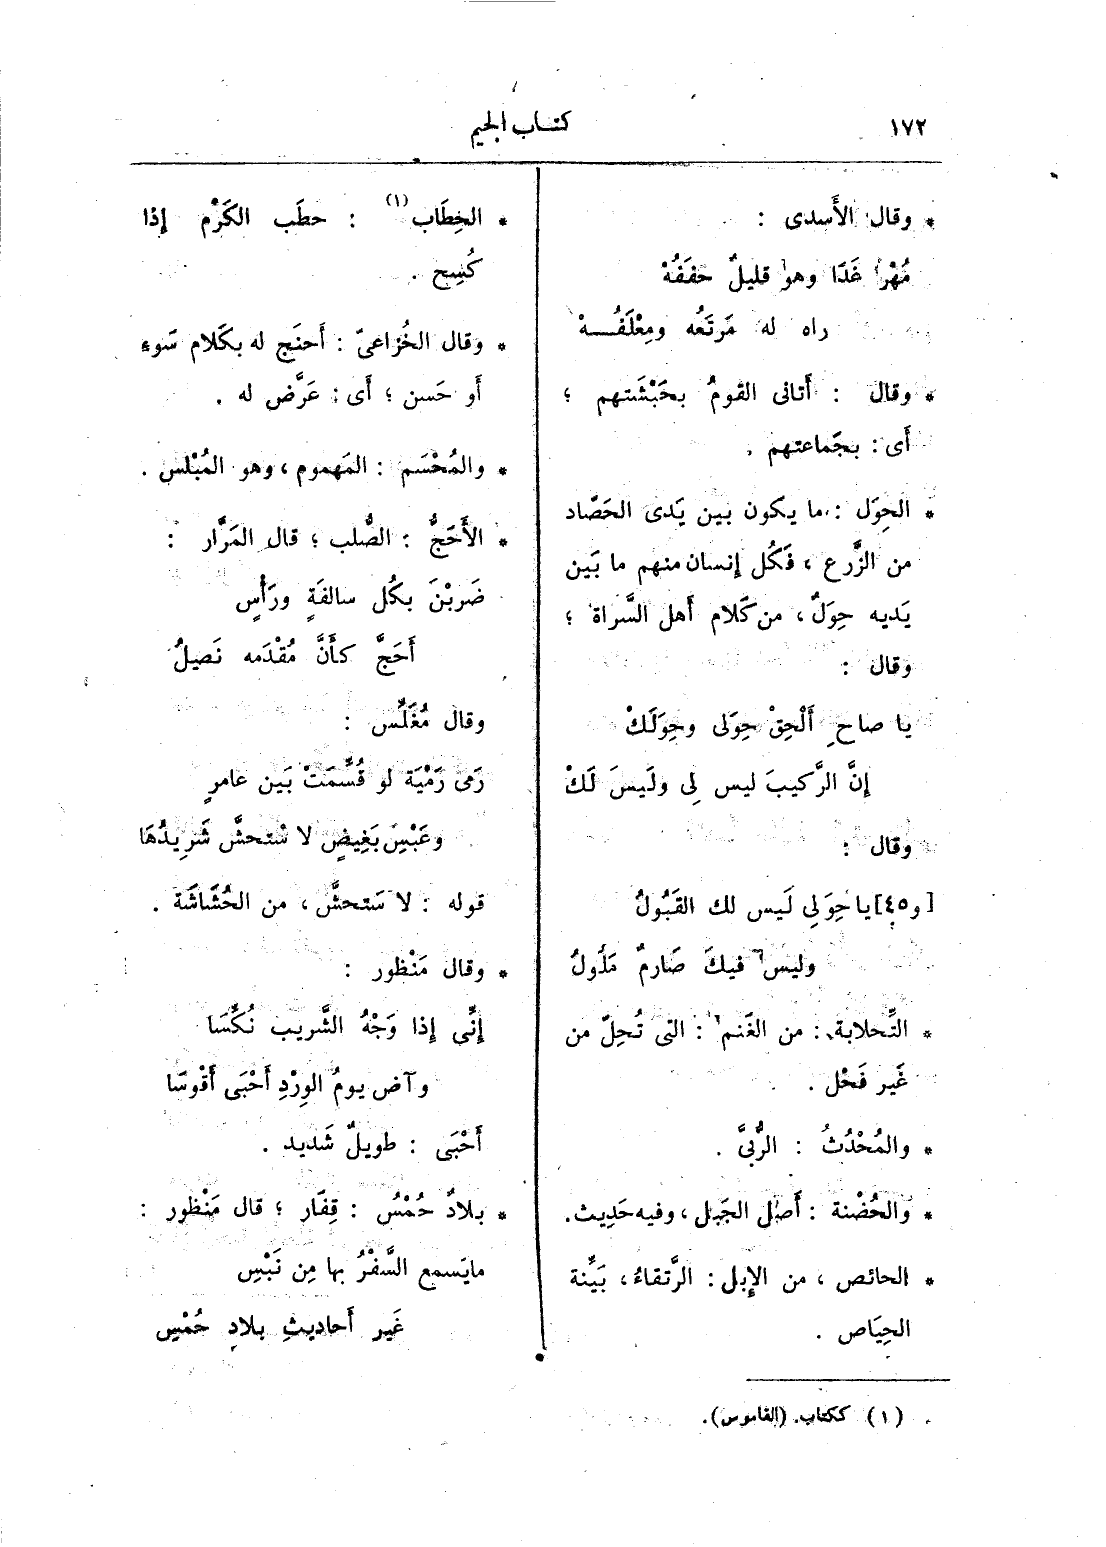 ١٧٢
كتاب الجيم
* وقال الأَسدى :
مُهْرًا غَدَا وهو قليلٌ حَفَفُهْ
راه له مَرتَعُه ومِعْلَفُهْ
* وقال : أَتانى القومُ بحَبْشَتهم ؛
أَى : بجَماعتهم .
* الحِوَل : ما يكون بين يَدى الحَصَّاد
من الزَّرع ، فَكُل إنسان منهم ما بَين
يَديه حِوَلٌ ، من كَلام أهل السَّراة ؛
وقال :
يا صاحِ أَلْحِقْ حِوَلى وحِوَلَكْ
إنَّ الرَّكيبَ ليس لِى ولَيسَ لَكْ
وقال :
[و٤٥] يا حِوَلِى لَيس لك القَبُولُ
وليس فيكَ صَارمٌ مَدْلولُ
* التِّحلابة : من الغَنم : التى تُحلّ من
غَير فَحْل .
* والمُحْدُثُ : الرُّبىَّ .
* والحُضْنة : أَصل الجَبل ، وفيه حَدِيث .
* الحائص ، من الإبل : الرَّتقاءُ ، بَيِّنة
الحِيَاص .
* الحِطَاب (١) : حطَب الكَرْم إذا
كُسِح .
* وقال الخُزاعىّ : أَحنَج له بكَلام سَوءٍ
أَو حَسن ؛ أَى : عَرَّض له .
* والمُحْسَم : المَهموم ، وهو المُبْلس .
* الأَحَجُّ : الصُّلب ؛ قال المَرَّار :
ضَربْنَ بكُل سالفَةٍ ورَأْسٍ
أَحَجَّ كأَنَّ مُقْدَمه نَصيلُ
وقال مُغَلِّس :
رَمى رَمْيَة لو قُسِّمَتْ بَين عامرٍ
وعَبْسِ بَغِيضٍ لاسْتحشَّ شَرِيدُهَا
قوله : لاسَتحشَّ ، من الحُشَاشَة .
* وقال مَنْظور :
إنِّى إذا وَجْهُ الشَّريب نُكِّسَا
وآض يومُ الوِرْدِ أَحْبَى أَقْوسَا
أَحْبَى : طويلٌ شَديد .
* بلادٌ حُمْسٌ : قِفَار ؛ قال مَنْظور :
مايَسمع السَّفْرُ بها مِن نَبْسِ
غَير أَحاديثِ بلادٍ حُمْسِ
(١) ككتاب. (القاموس).